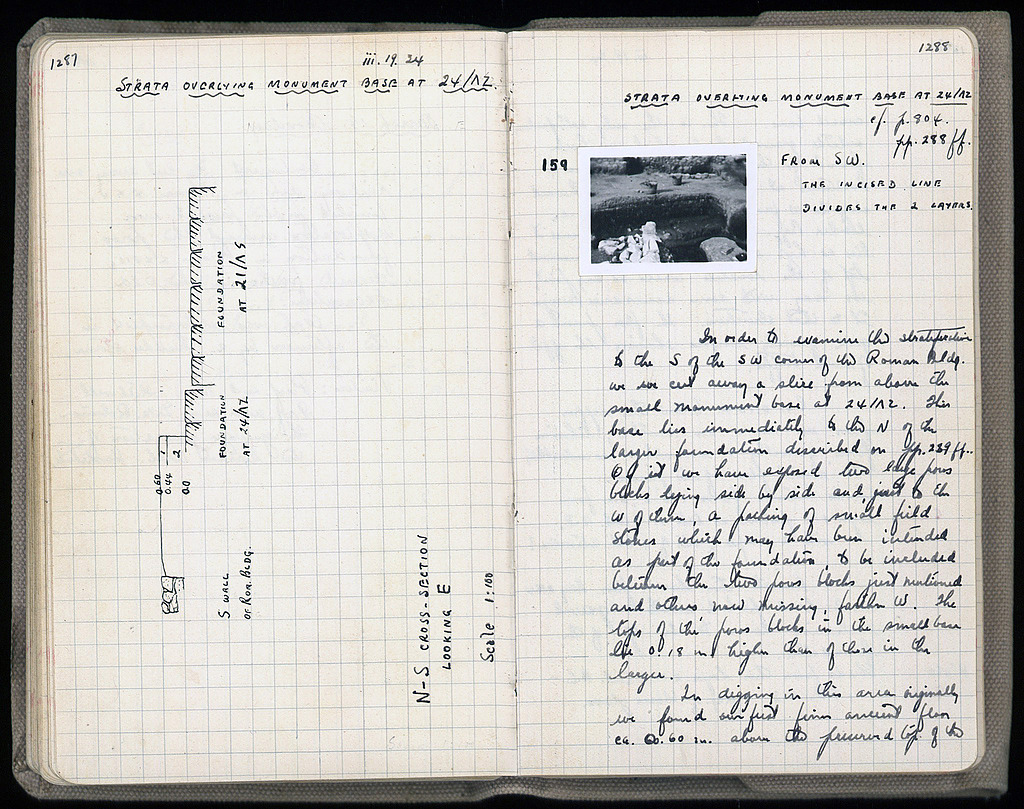 1287
iii. 19. 34
STRATA OVERLYING MONUMENT BASE AT 24/ΛΖ.
FOUNDATION
AT 21/ΛΣ
FOUNDATION
AT 24/ΛΖ
1
2
0.60
0.44
0.0
S WALL
OF ROM. BLDG.
N-S CROSS-SECTION
LOOKING E
Scale 1:100
1288
STRATA OVERLYING MONUMENT BASE AT 24/ΛΖ
cf. p. 804.
pp. 288 ff.
159
FROM SW.
THE INCISED LINE
DIVIDES THE 2 LAYERS.
In order to examine the stratification
to the S of the SW corner of the Roman Bldg.
we cut away a slice from above the
small monument base at 24/ΛΖ. This
base lies immediately to the N of the
larger foundation described on pp. 239 ff..
Of it we have exposed two large poros
blocks lying side by side and just to the
W of them, a packing of small field
stones which may have been intended
as part of the foundation, to be included
between the two poros blocks just mentioned
and others now missing, farther W. The
tops of the poros blocks in the small base
lie 0.18 m higher than of those in the
larger.
In digging in this area originally
we found our first firm ancient floor
ca. 0.60 m. above the preserved top of the